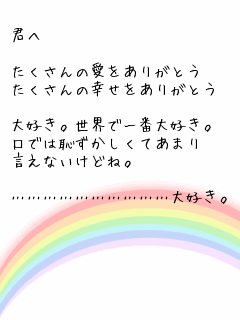 君へ
たくさんの愛をありがとう
たくさんの幸せをありがとう
大好き。世界で一番大好き。
口では恥ずかしくてあまり
言えないけどね。
…………………………大好き。